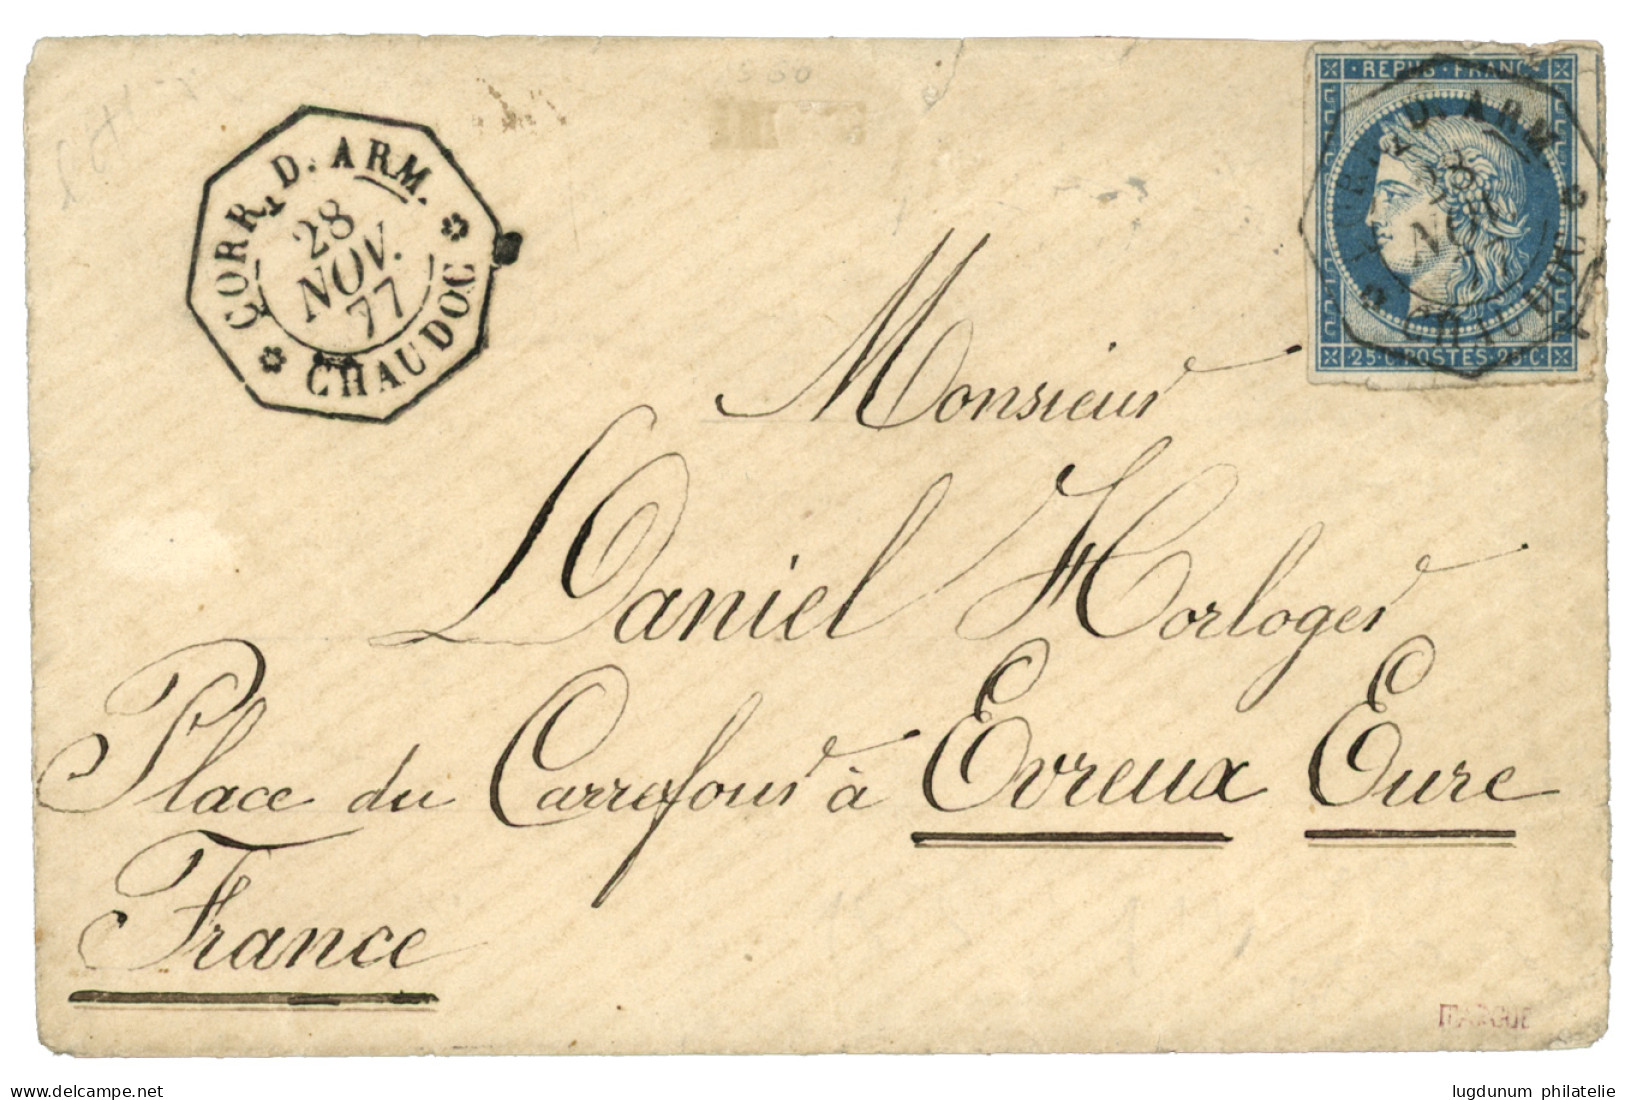 REPUB · FRANC
CORR. D. ARM.
28
NOV.
77
CHAUDOC
CORR. D. ARM
28
NOV
77
CHAUDOC
25·C·POSTES·25·C·
Monsieur
Daniel Horloger
Place du Carrefour à Evreux Eure
France
delcampe.net
lugdunum philatelie